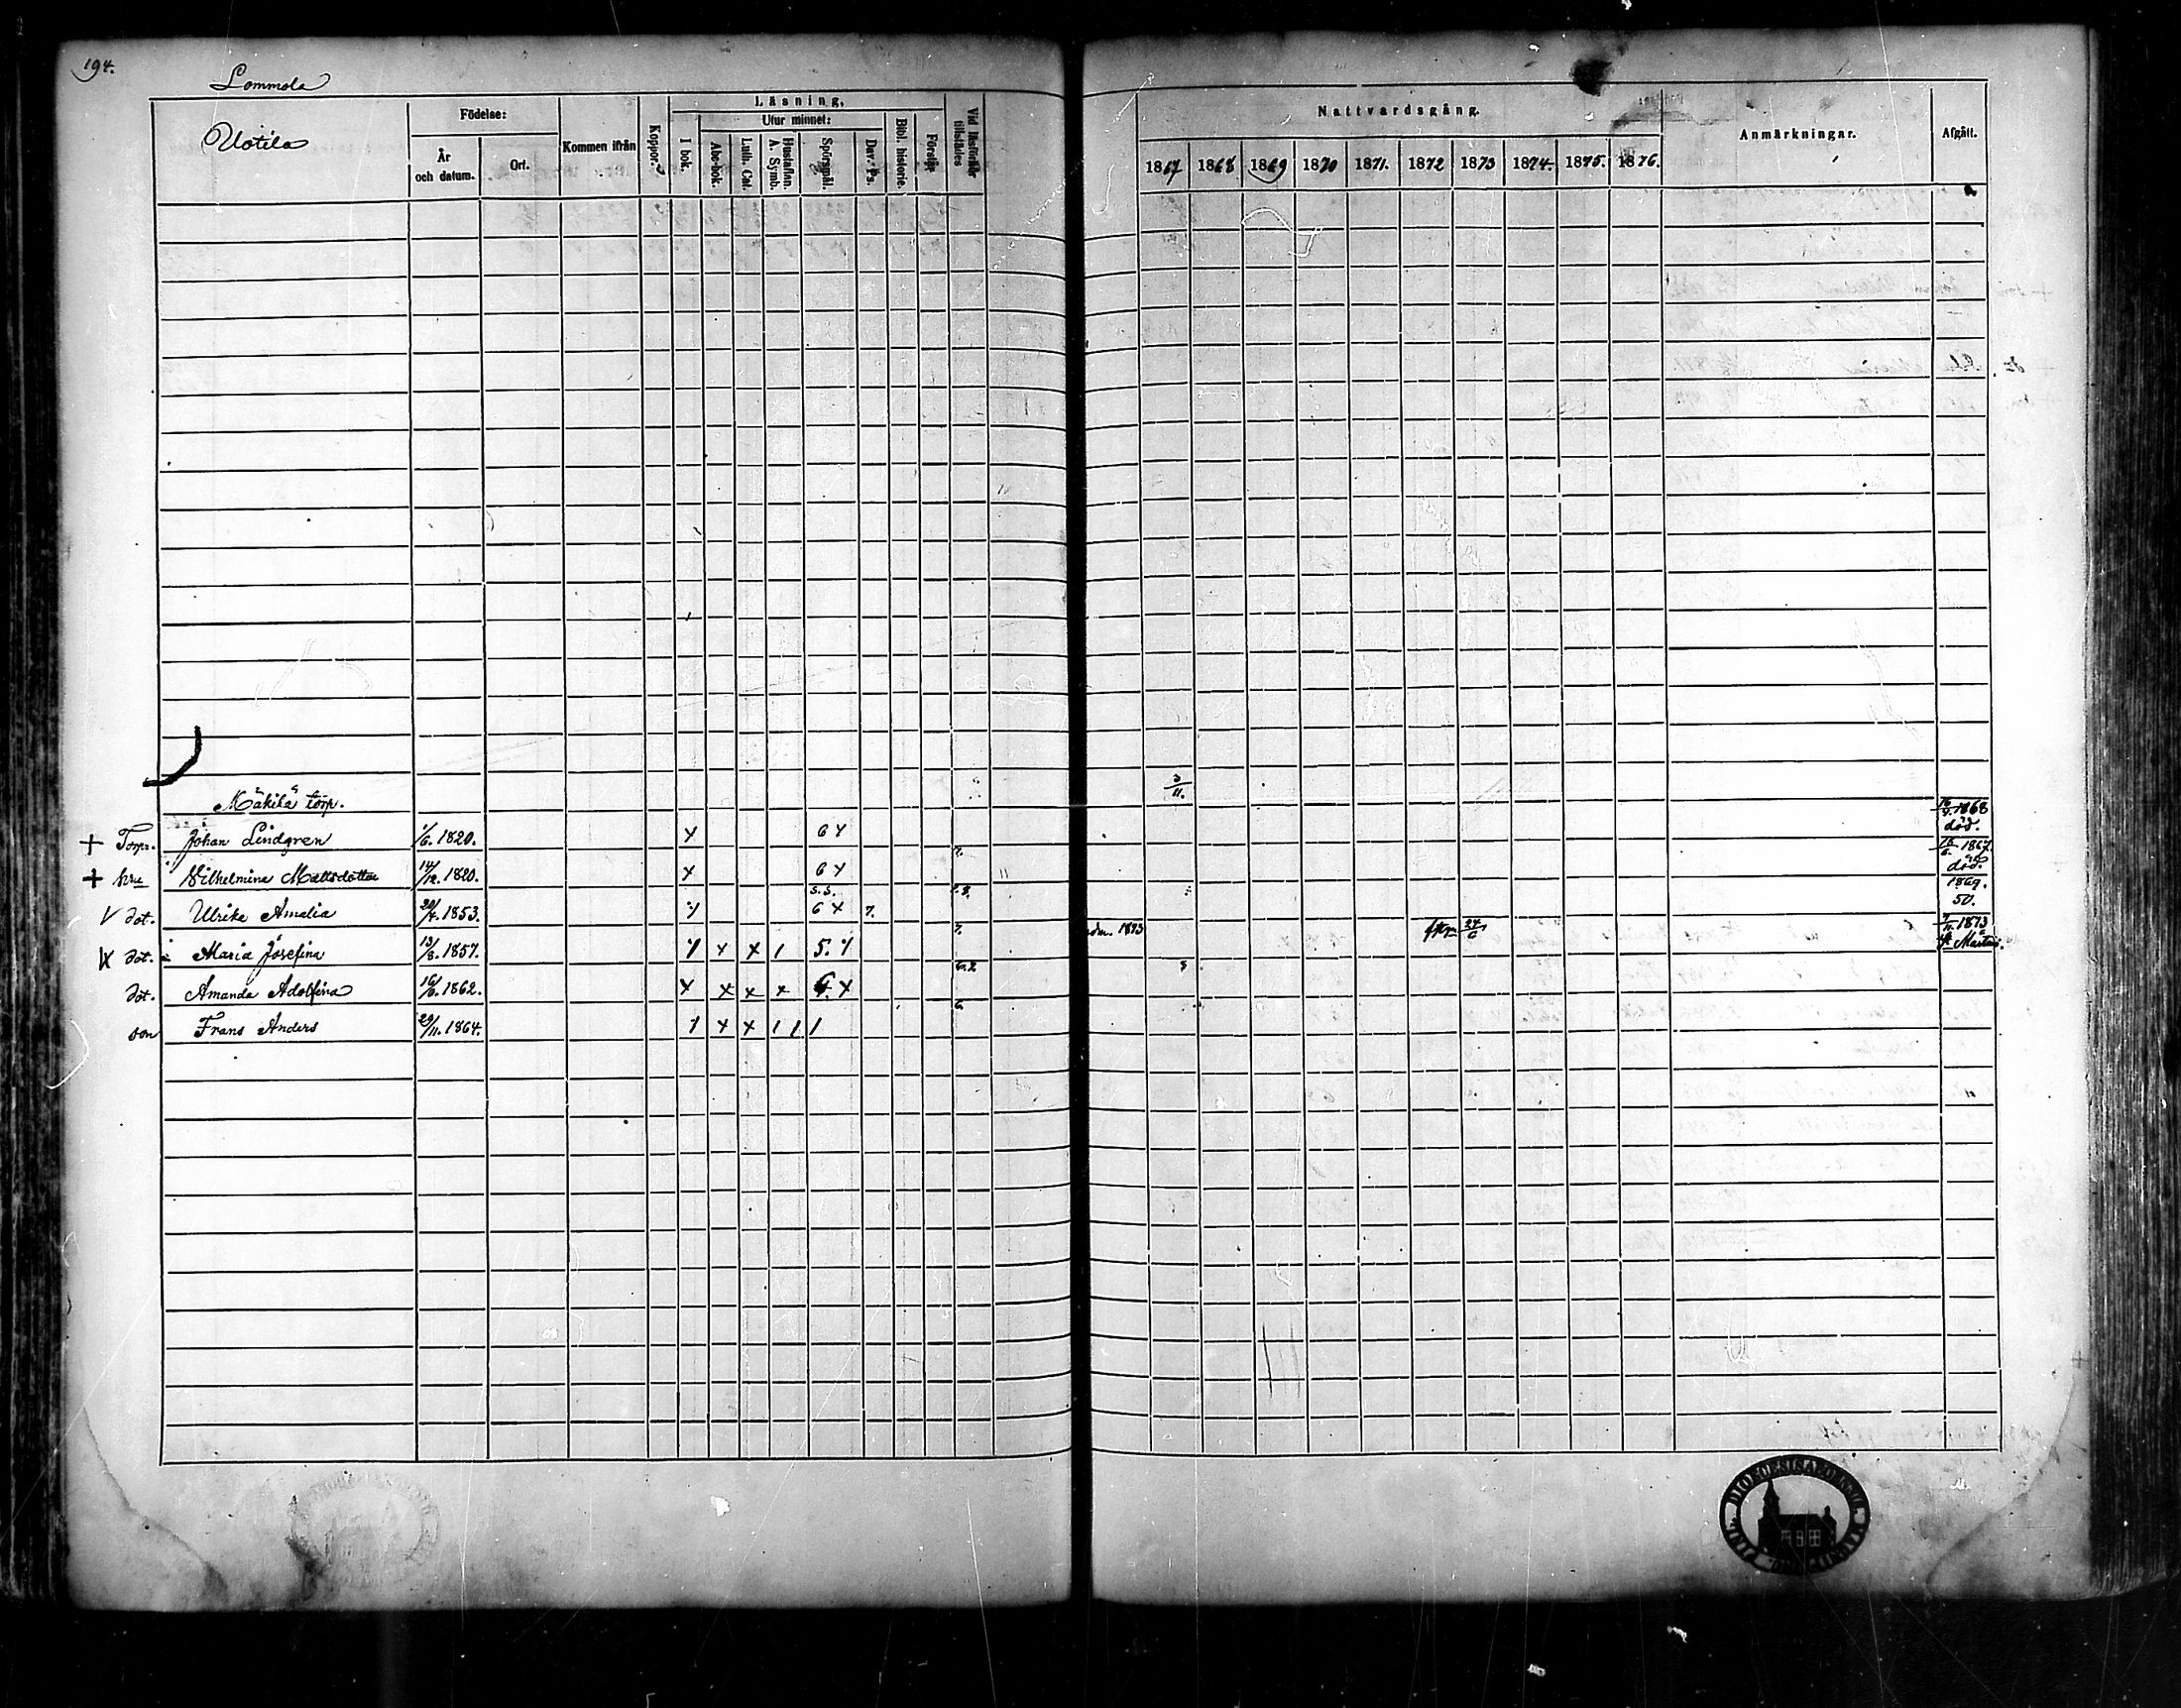 194.
Lommola
Uotila
Födelse:
År och datum.
Ort.
Kommen ifrån
Koppor.
Läsning,
Utur minnet:
I bok.
Abc-bok.
Luth. Cat.
Hustaflan. A. Symb.
Spörsmål.
Dav. Ps.
Bibl. historie.
Förstår
Vid läsförhör tillstädes
Nattvardsgång.
1867 1868 1869 1870 1871. 1872 1873 1874. 1875. 1876.
Anmärkningar.
Afgått.
Mäkilä torp.
3/11.
+ Torp. Johan Lindgren 1/6. 1820. x 6 x 1868 död.
+ hru Vilhelmina Mattsdotter 14/12. 1820. x 6 x 7. 1867. död
V dot. Ulrika Amalia 1853. s.s. 6 x 7. 1869. 50.
dot. Maria Josefina 13/8. 1857. x x 1 5. 7. adm. 1873 24/6 1873
dot. Amanda Adolfina 1862. x x x x 6 x 6.2
son Frans Anders 29/11. 1864. x x 1 1 1 6.
DIOECESIS ABOENSIS